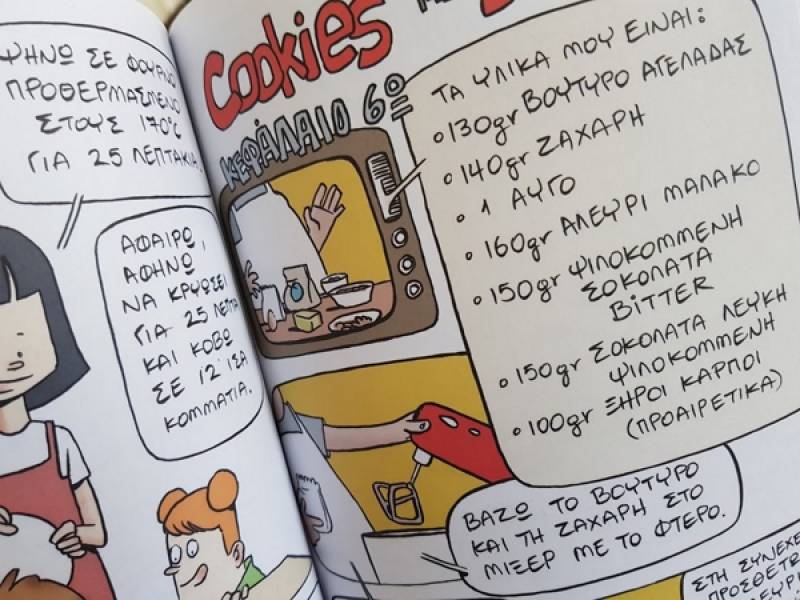 ΨΗΝΩ ΣΕ ΦΟΥΡΝΟ
ΠΡΟΘΕΡΜΑΣΜΕΝΟ
ΣΤΟΥΣ 170°C
ΓΙΑ 25 ΛΕΠΤΑΚΙΑ.
ΑΦΑΙΡΩ,
ΑΦΗΝΩ,
ΝΑ ΚΡΥΩΣΕΙ
ΓΙΑ 25 ΛΕΠΤΑ
ΚΑΙ ΚΟΒΩ
ΣΕ 12 ΙΣΑ
ΚΟΜΜΑΤΙΑ.
Cookies
ΚΕΦΑΛΑΙΟ 6º
ΤΑ ΥΛΙΚΑ ΜΟΥ ΕΙΝΑΙ:
130gr ΒΟΥΤΥΡΟ ΑΓΕΛΑΔΑΣ
140gr ΖΑΧΑΡΗ
1 ΑΥΓΟ
160gr ΑΛΕΥΡΙ ΜΑΛΑΚΟ
150gr ΨΙΛΟΚΟΜΜΕΝΗ
ΣΟΚΟΛΑΤΑ
BITTER
150gr ΣΟΚΟΛΑΤΑ ΛΕΥΚΗ
ΨΙΛΟΚΟΜΜΕΝΗ
100gr ΞΗΡΟΙ ΚΑΡΠΟΙ
(ΠΡΟΑΙΡΕΤΙΚΑ)
ΒΑΖΩ ΤΟ ΒΟΥΤΥΡΟ
ΚΑΙ ΤΗ ΖΑΧΑΡΗ ΣΤΟ
ΜΙΞΕΡ ΜΕ ΤΟ ΦΤΕΡΟ.
ΣΤΗ ΣΥΝΕΧΕ
ΠΡΟΣΘΕΤΩ